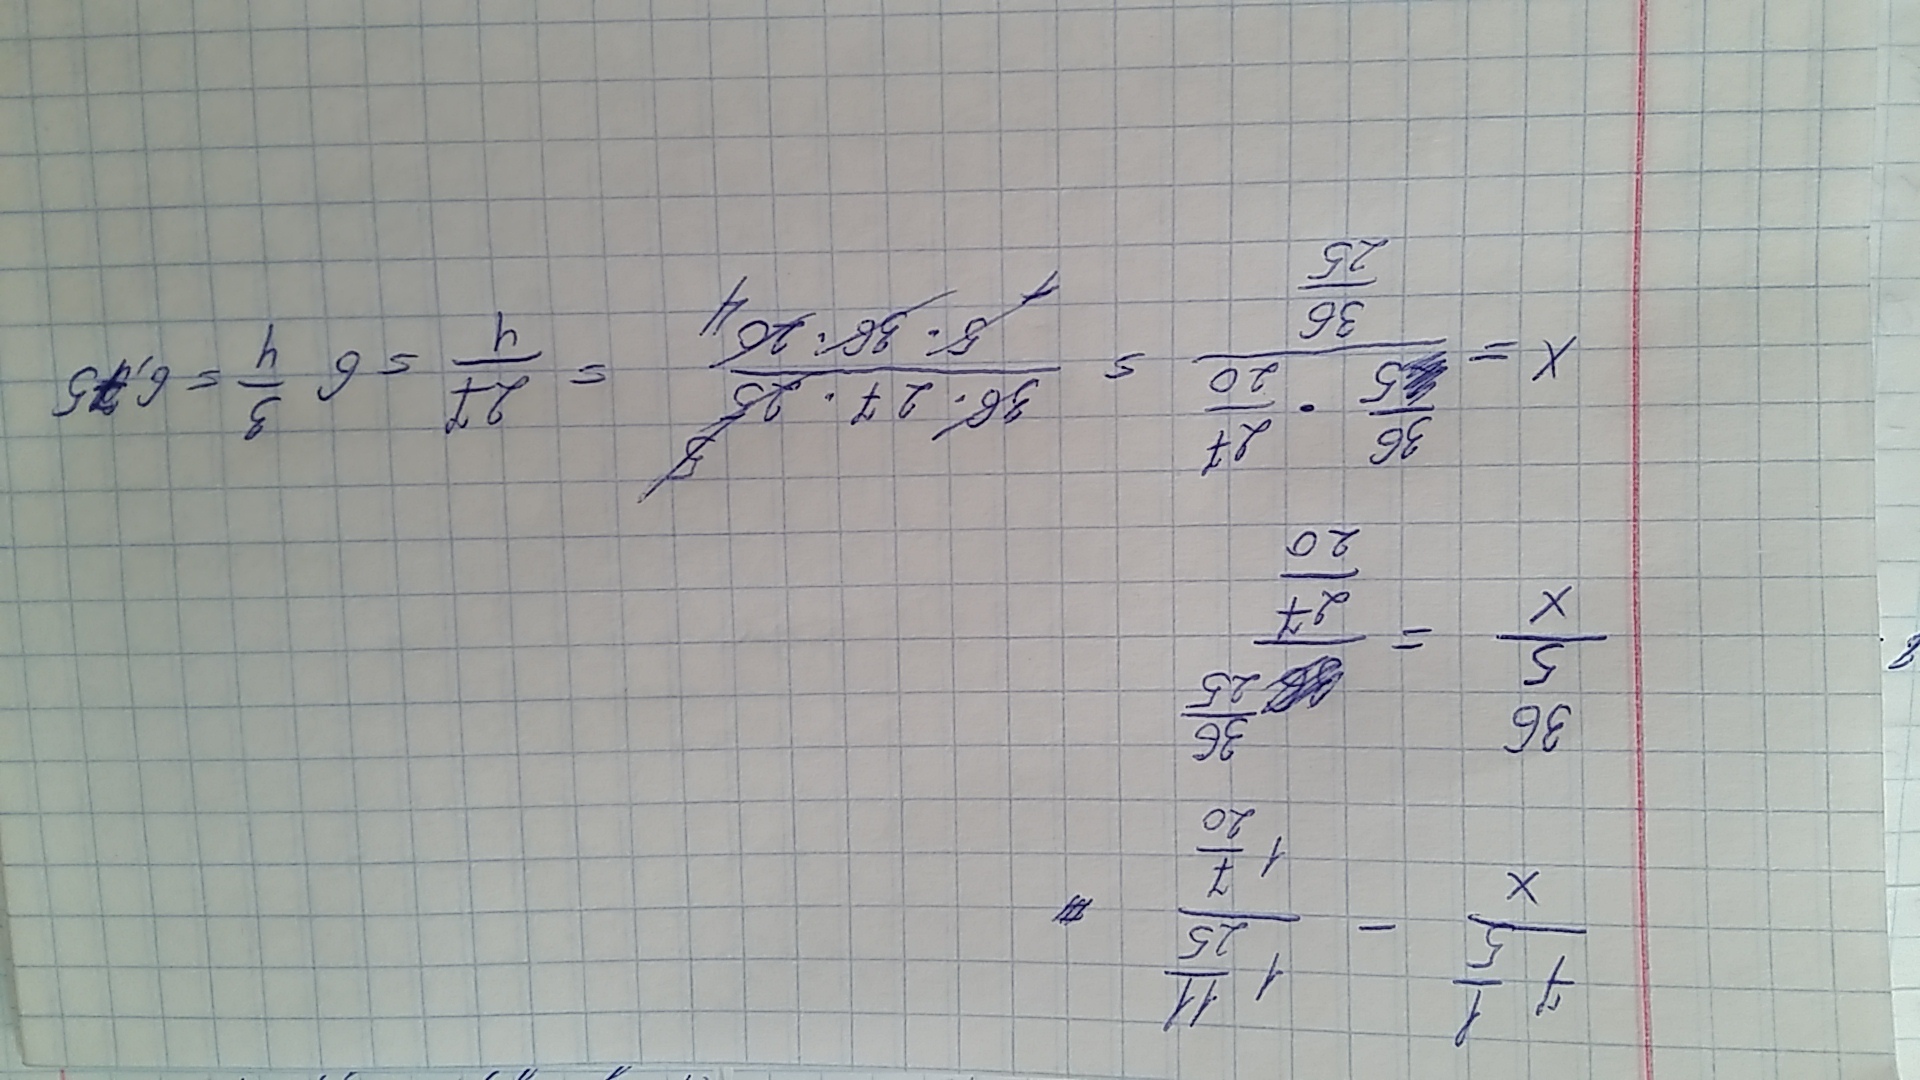 7 1/5 / x - 1 11/25 / 1 7/20
36/5 / x = 36/25 / 27/20
x = 36/5 · 27/20 / 36/25 = 36 · 27 · 25 / 5 · 36 · 20 = 27/4 = 6 3/4 = 6,75